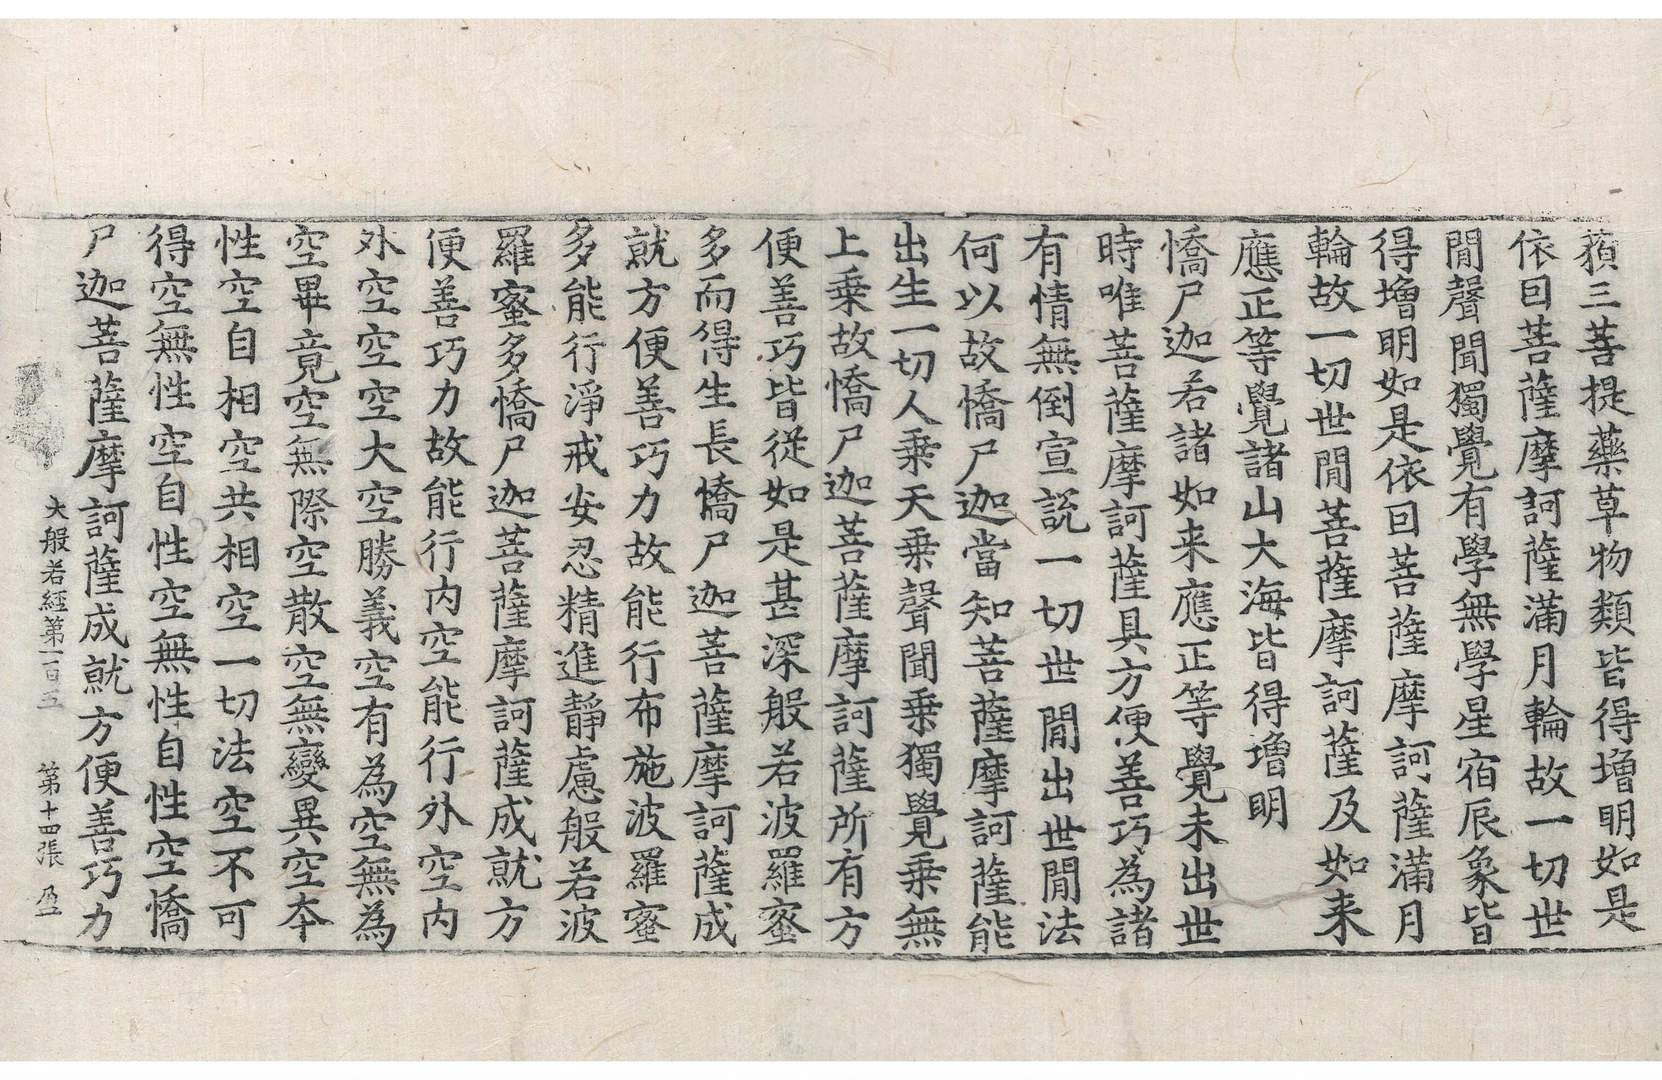 藐三菩提藥草物類皆得增明如是
依因菩薩摩訶薩滿月輪故一切世
閒聲聞獨覺有學無學星宿辰象皆
得增明如是依因菩薩摩訶薩滿月
輪故一切世閒菩薩摩訶薩及如来
應正等覺諸山大海皆得增明
憍尸迦若諸如来應正等覺未出世
時唯菩薩摩訶薩具方便善巧為諸
有情無倒宣說一切世閒出世閒法
何以故憍尸迦當知菩薩摩訶薩能
出生一切人乗天乗聲聞乗獨覺乗無
上乗故憍尸迦菩薩摩訶薩所有方
便善巧皆從如是甚深般若波羅蜜
多而得生長憍尸迦菩薩摩訶薩成
就方便善巧力故能行布施波羅蜜
多能行淨戒安忍精進靜慮般若波
羅蜜多憍尸迦菩薩摩訶薩成就方
便善巧力故能行内空能行外空内
外空空空大空勝義空有為空無為
空畢竟空無際空散空無變異空夲
性空自相空共相空一切法空不可
得空無性空自性空無性自性空憍
尸迦菩薩摩訶薩成就方便善巧力
大般若經第一百五　第十四張　盈